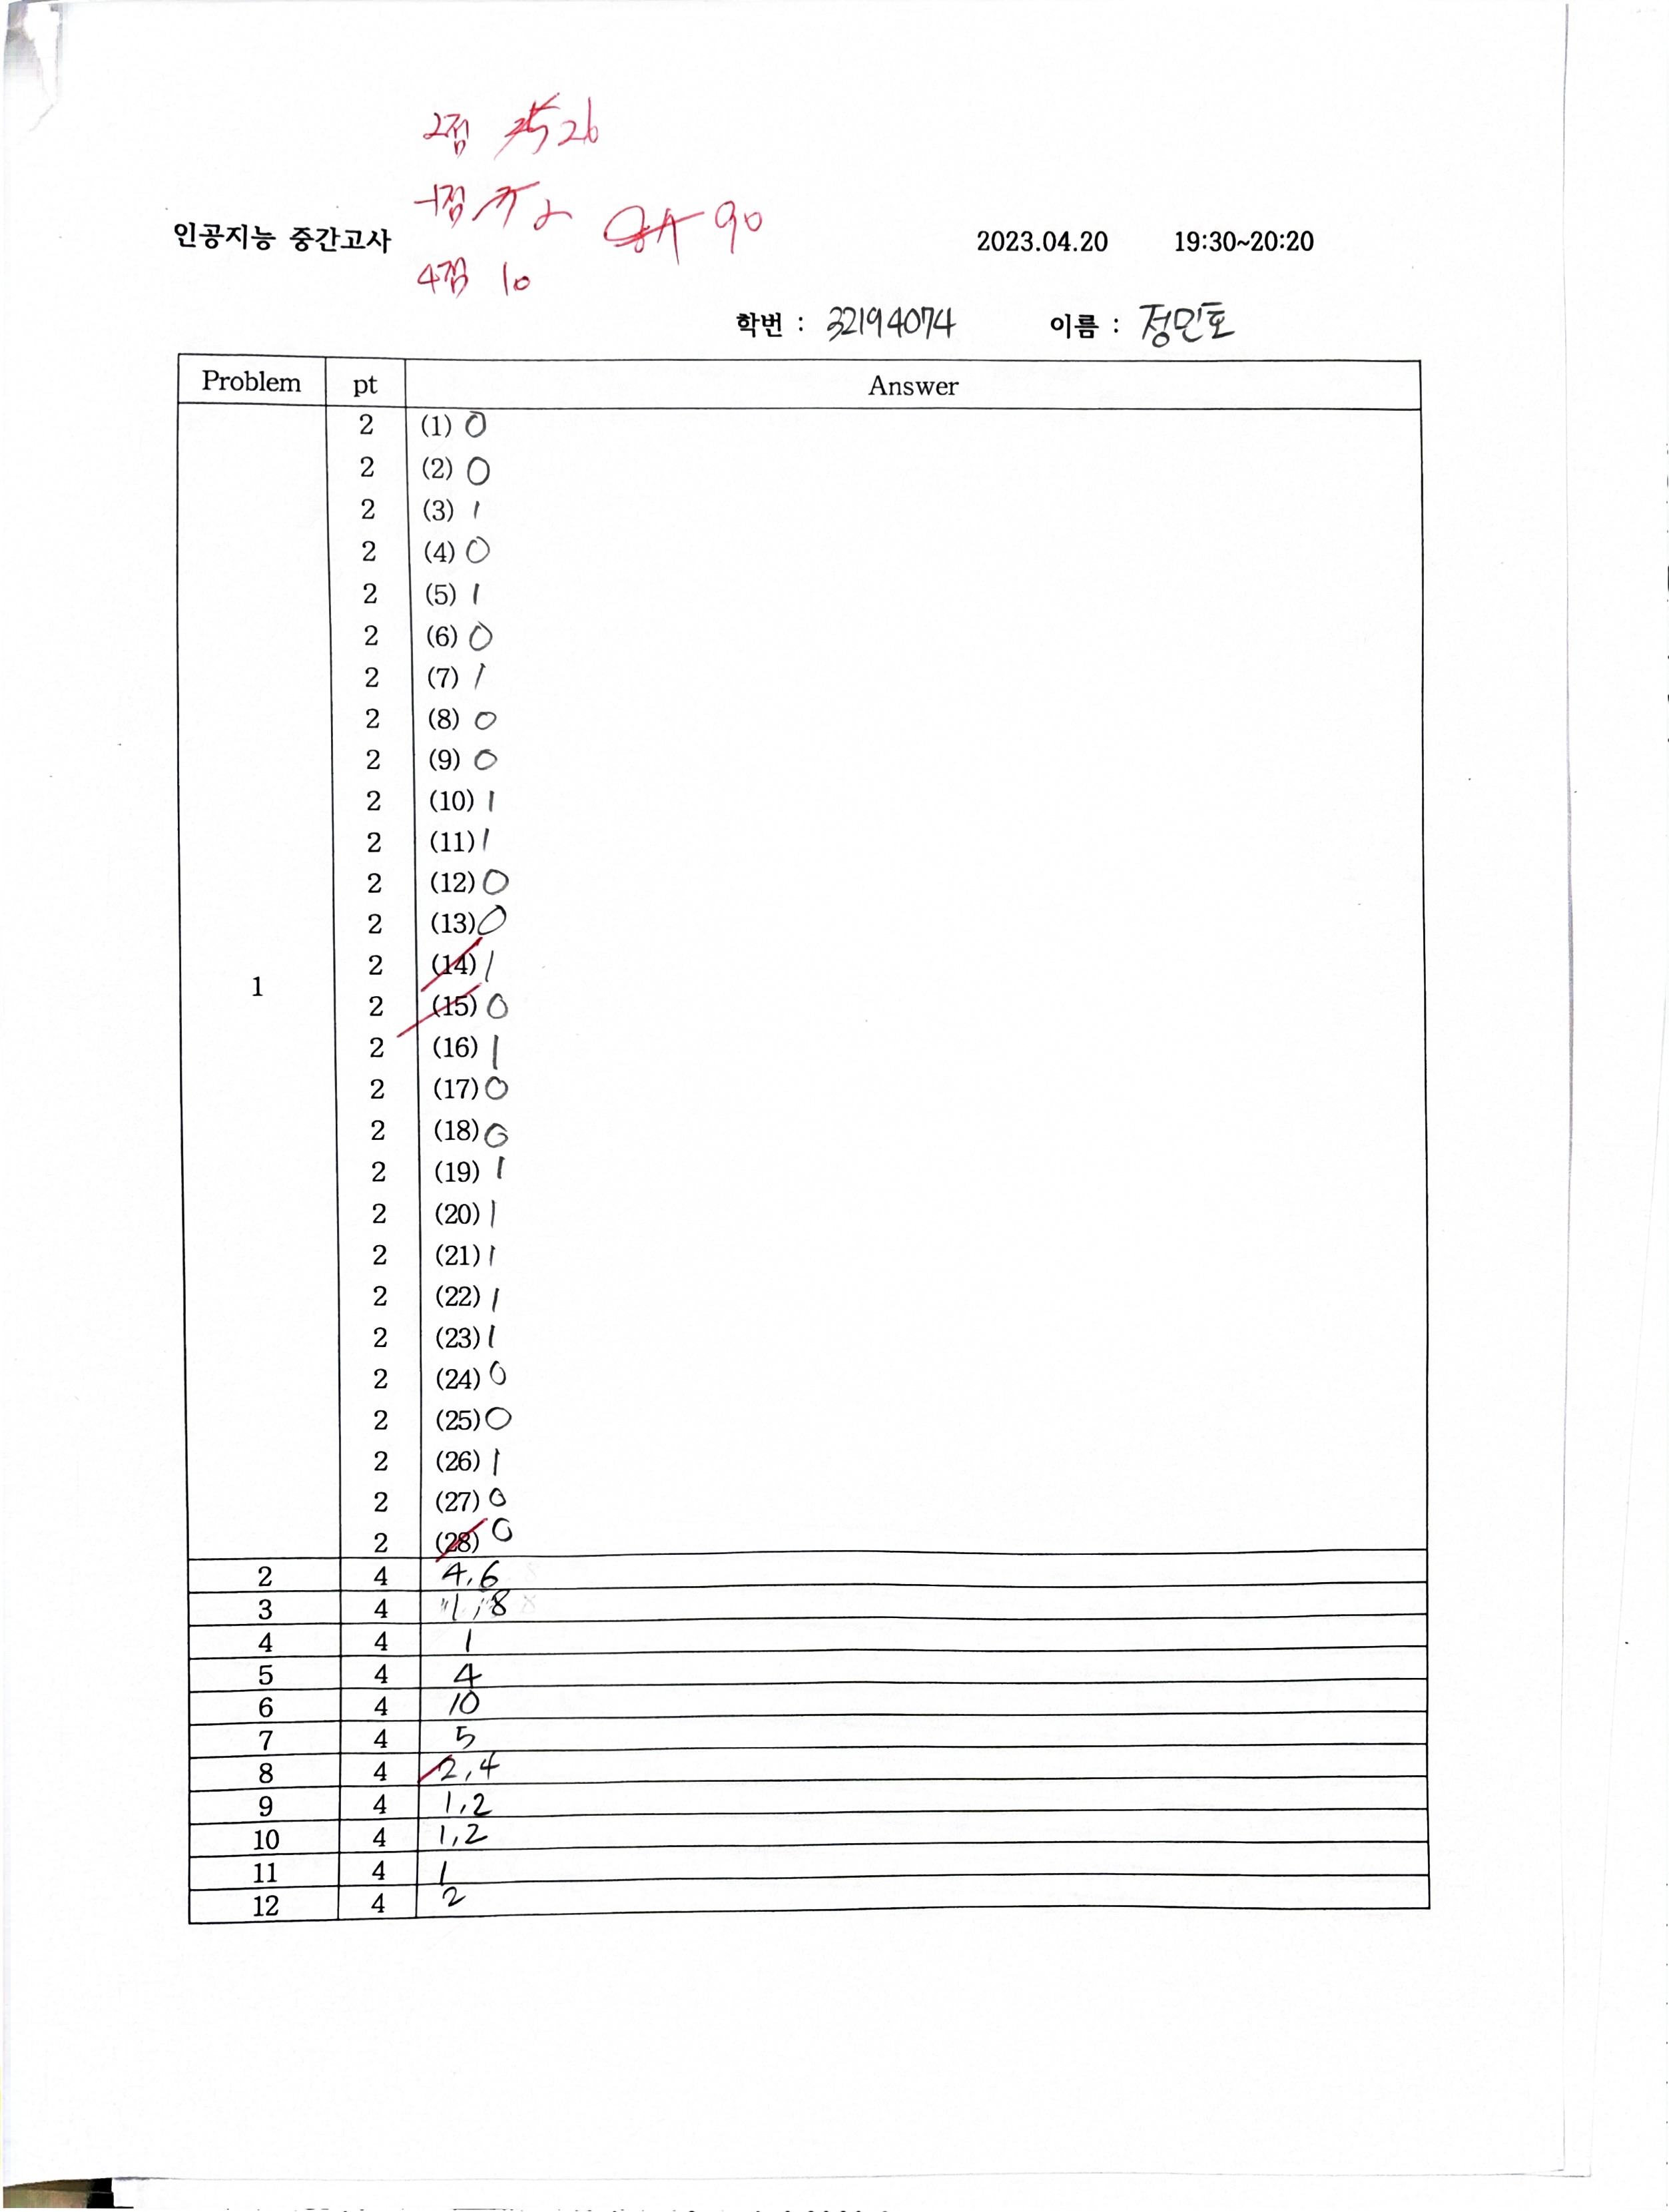 2점 26
-1점 2 90
인공지능 중간고사 2023.04.20 19:30~20:20
4점 10
학번 : 32194074 이름 : 정민호
Problem pt Answer
2 (1) 0
2 (2) 0
2 (3) 1
2 (4) 0
2 (5) 1
2 (6) 0
2 (7) 1
2 (8) 0
2 (9) 0
2 (10) 1
2 (11) 1
2 (12) 0
2 (13) 0
2 (14) 1
1
2 (15) 0
2 (16) 1
2 (17) 0
2 (18) 0
2 (19) 1
2 (20) 1
2 (21) 1
2 (22) 1
2 (23) 1
2 (24) 0
2 (25) 0
2 (26) 1
2 (27) 0
2 (28) 0
2 4 4,6
3 4 1,8
4 4 1
5 4 4
6 4 10
7 4 5
8 4 2,4
9 4 1,2
10 4 1,2
11 4 1
12 4 2